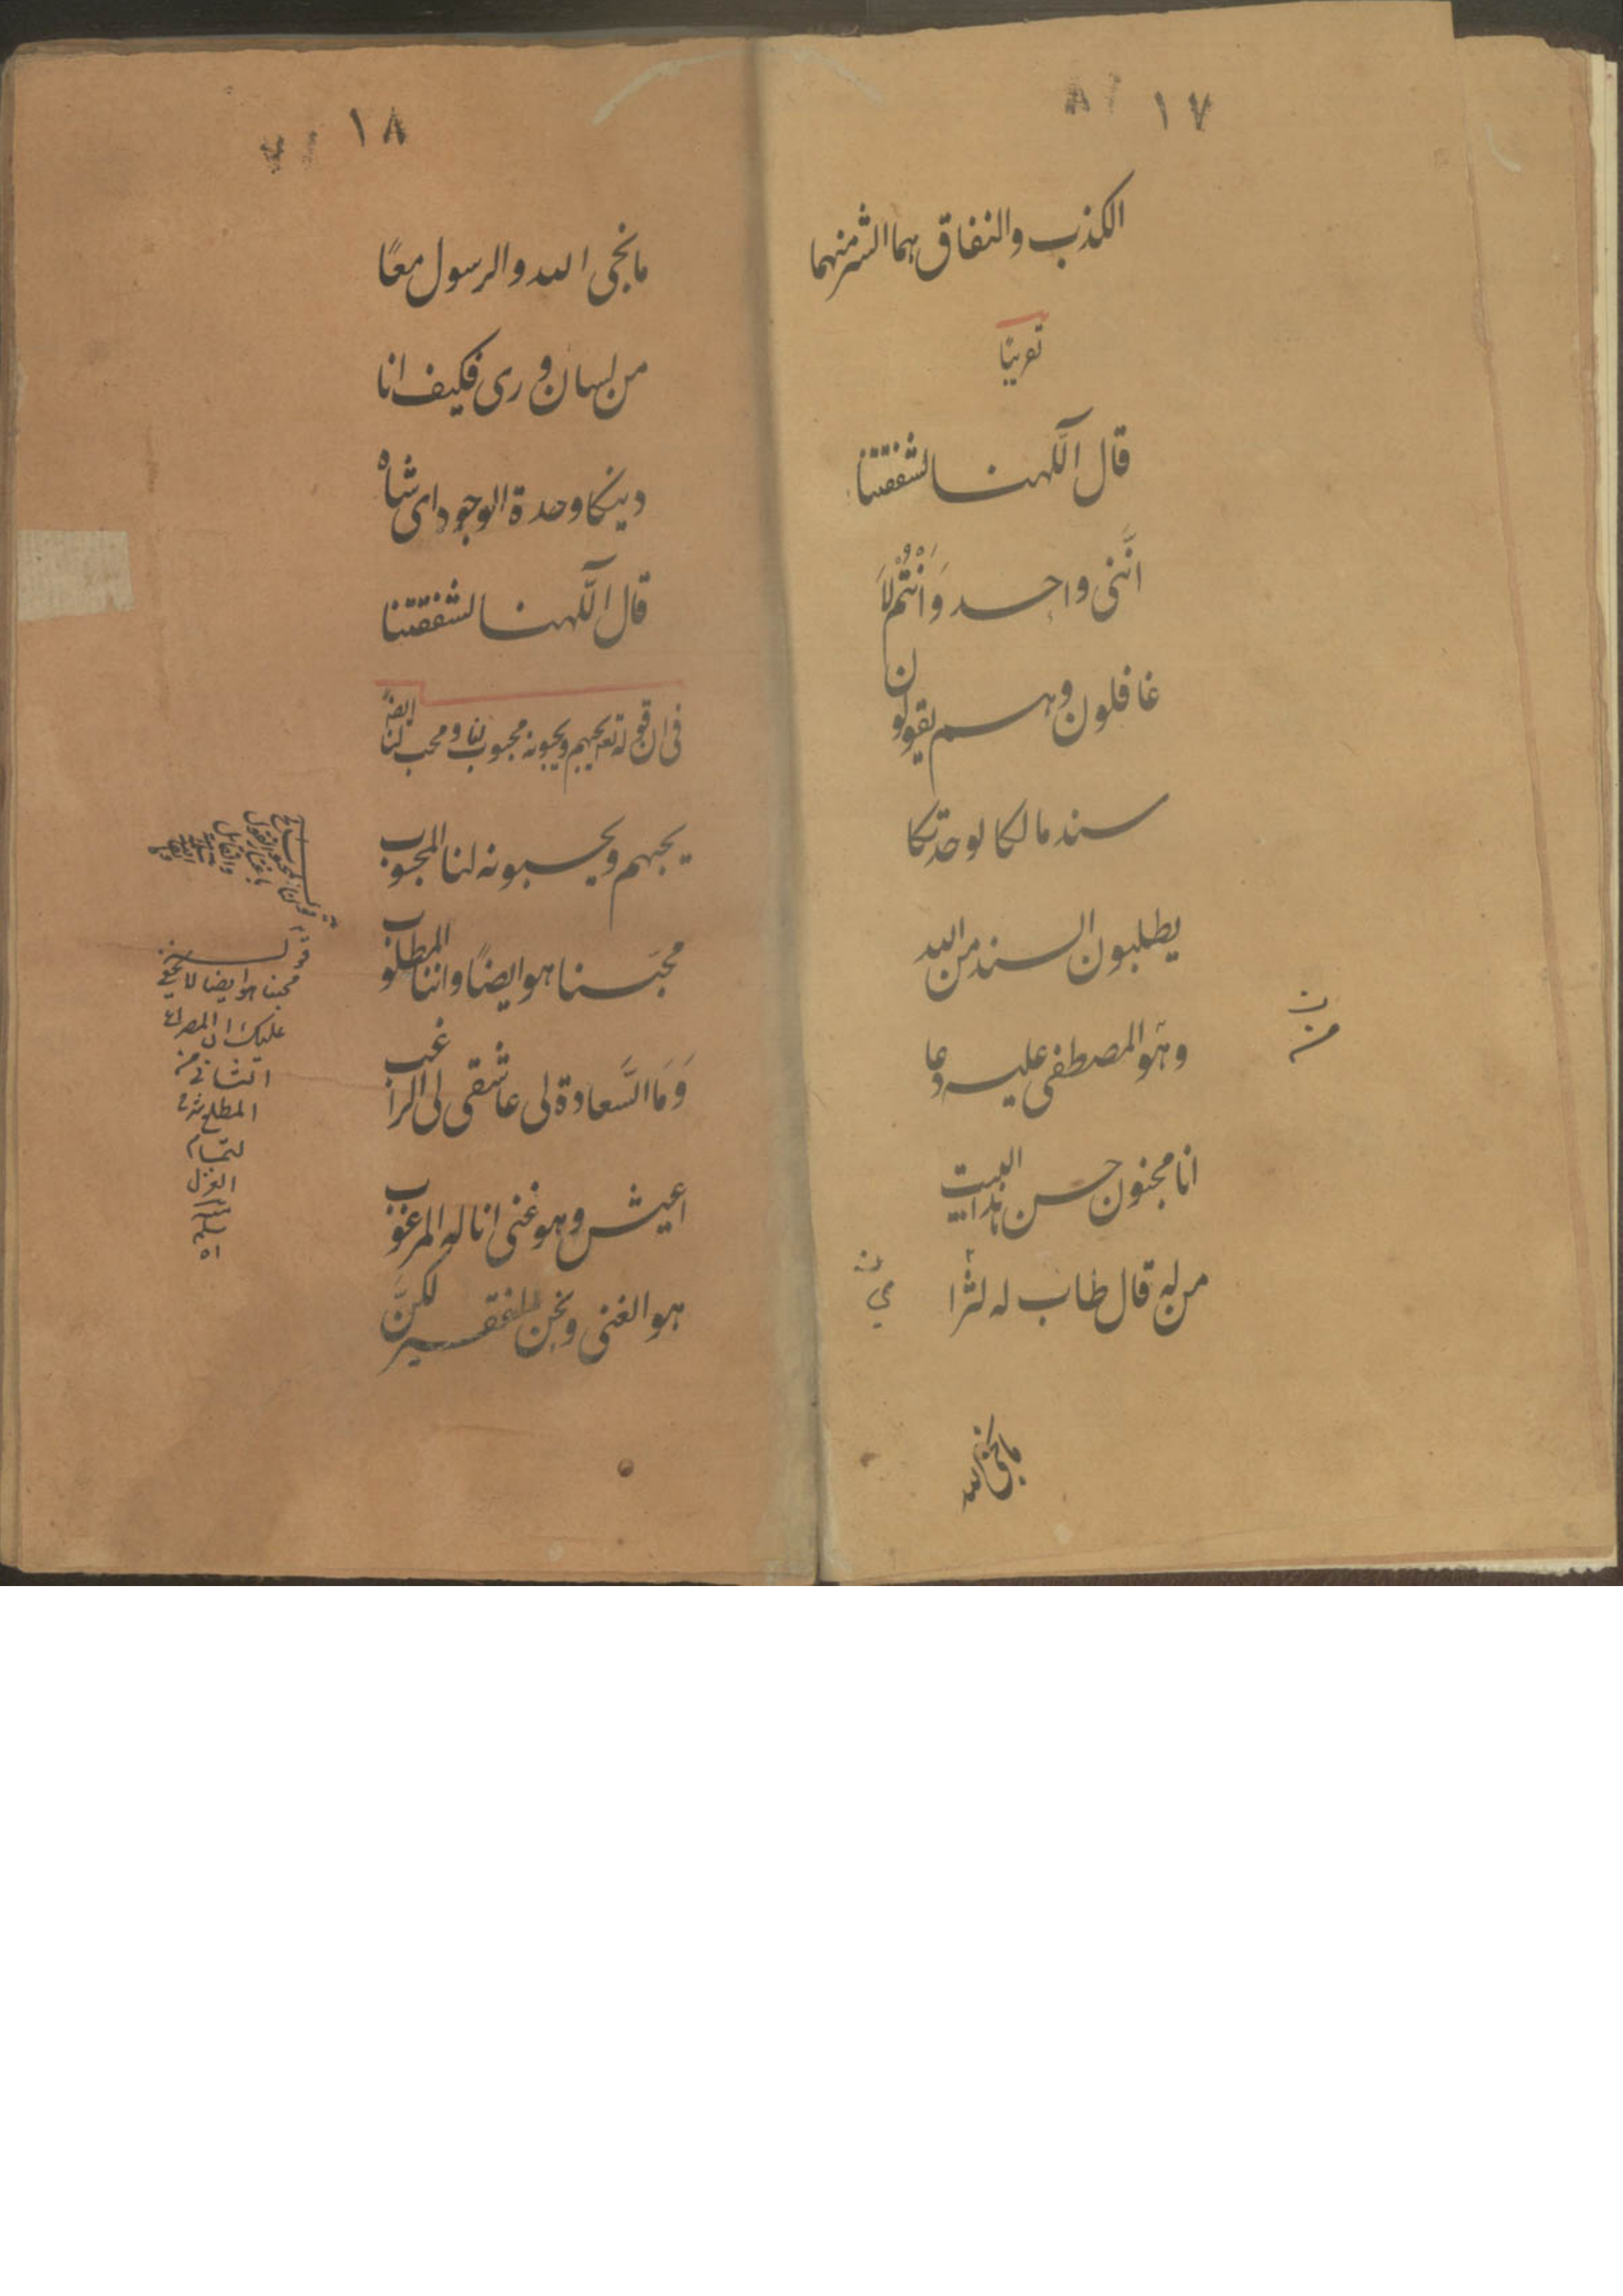 ١٧
الكذب والنفاق هما الشر منهما
قال آلٰهنا لشفقتنا
انَّنى واحد وَاَنْتُم لَا
غافلون وهم يقولون
سند ما لكا لوحدتكا
يطلبون السند من الله
وهو المصطفى عليه دعا
انا مجنون حسن البيت
من له قال طاب له لثرا
١٨
ما نجى الله والرسول معًا
من لسان ورى فكيف انا
دينكا وحدة الوجود اى شاه
قال آلٰهنا لشفقتنا
فى ان قوله تع يحبهم ويحبونه محبوب لنا ومحب لنا ايضًا
يحبهم ويحبونه لنا المحبوب
محبنا هو ايضًا واننا المطلوب
وَمَا السَّعادة لى عاشقى لى الراغب
اعيش وهو غنى انا له المرغوب
هو الغنى ونحن الفقير لكنَّ
محبنا هو ايضا لا يخفى
عليك ان المصراع
الثانى من
المطلع
لتمام
الغزل